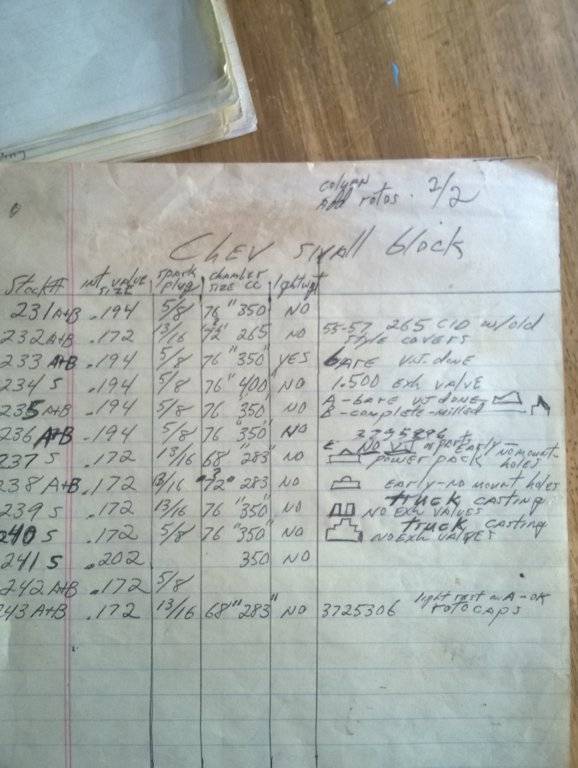 column 2/2
Add rotos.
Chev small block
Stock# int. valve size spark plug chamber size cc lightwgt
231 A+B .194 5/8 76 "350" NO
232 A+B .172 13/16 "72" 265 NO 55-57 265 CID w/old style covers
233 A+B .194 5/8 76 "350" YES bare VJ. done
234 S .194 5/8 76 "400" NO 1.500 exh valve
235 A+B .194 5/8 76 "350" NO A - bare VJ done B - complete-milled
236 A+B .194 5/8 76 "350" NO
237 S .172 13/16 68 "283" NO power pack early- no mount holes
238 A+B .172 13/16 "72" 283 NO early-no mount holes
239 S .172 13/16 76 "350" NO truck casting NO Exh valves
240 S .172 5/8 76 "350" NO truck casting NO Exh valves
241 S .202 350 NO
242 A+B .172 5/8
243 A+B .172 13/16 68" 283" NO 3725306 light rust on A-OK rotocaps